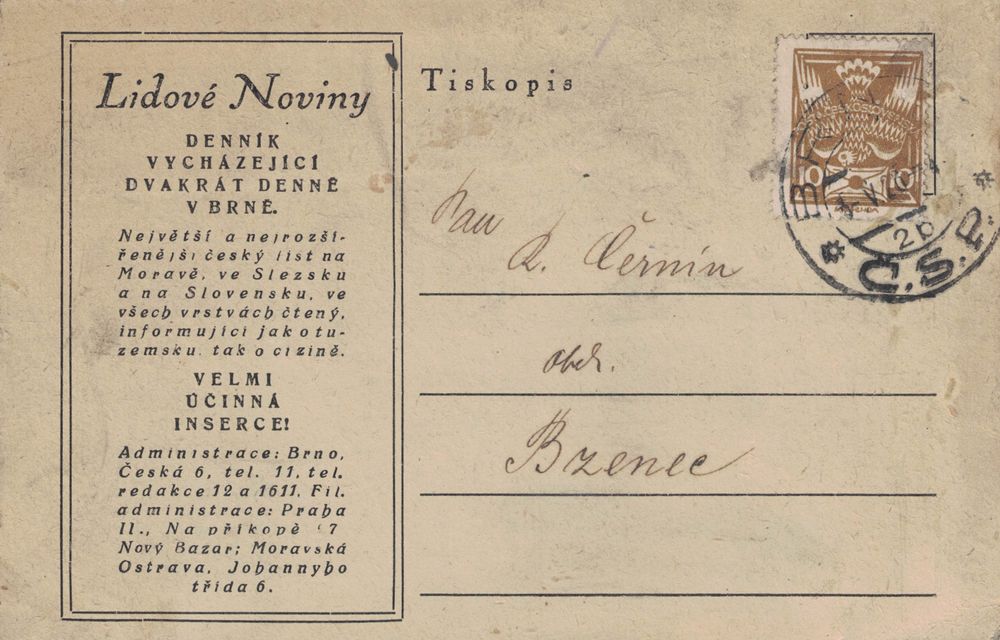 Lidové Noviny
DENNÍK
VYCHÁZEJÍCÍ
DVAKRÁT DENNĚ
V BRNĚ.
Největší a nejrozší-
řenější český list na
Moravě, ve Slezsku
a na Slovensku, ve
všech vrstvách čtený,
informující jak o tu-
zemsku, tak o cizině.
VELMI
ÚČINNÁ
INSERCE!
Administrace: Brno,
Česká 6, tel. 11, tel.
redakce 12 a 1611. Fil.
administrace: Praha
II., Na příkopě 7
Nový Bazar; Moravská
Ostrava, Johannyho
třída 6.
Tiskopis
10 10
2b
Č.S.P.
Pan
R. Černín
obch.
Bzenec